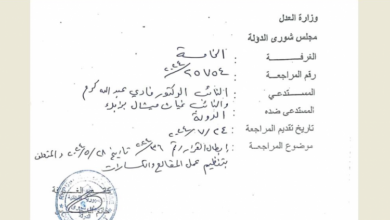 وزارة العدل
مجلس شورى الدولة
الغرفــــة : الخامسة
رقم المراجعة : ٢٥٧٥٤/٢٠٢٤
المستدعــي : النائب الدكتور فادي عبدالله كرم
والنائب غياث ميشال يزبك
المستدعى ضده : الدولة
تاريخ تقديم المراجعة : ٢٠٢٤/٧/٢٤
موضوع المراجعة : إبطال القرار رقم ٣٦ تاريخ ٢٠٢٤/٥/٢٨ والمتعلق
بتنظيم عمل المقالع والكسارات